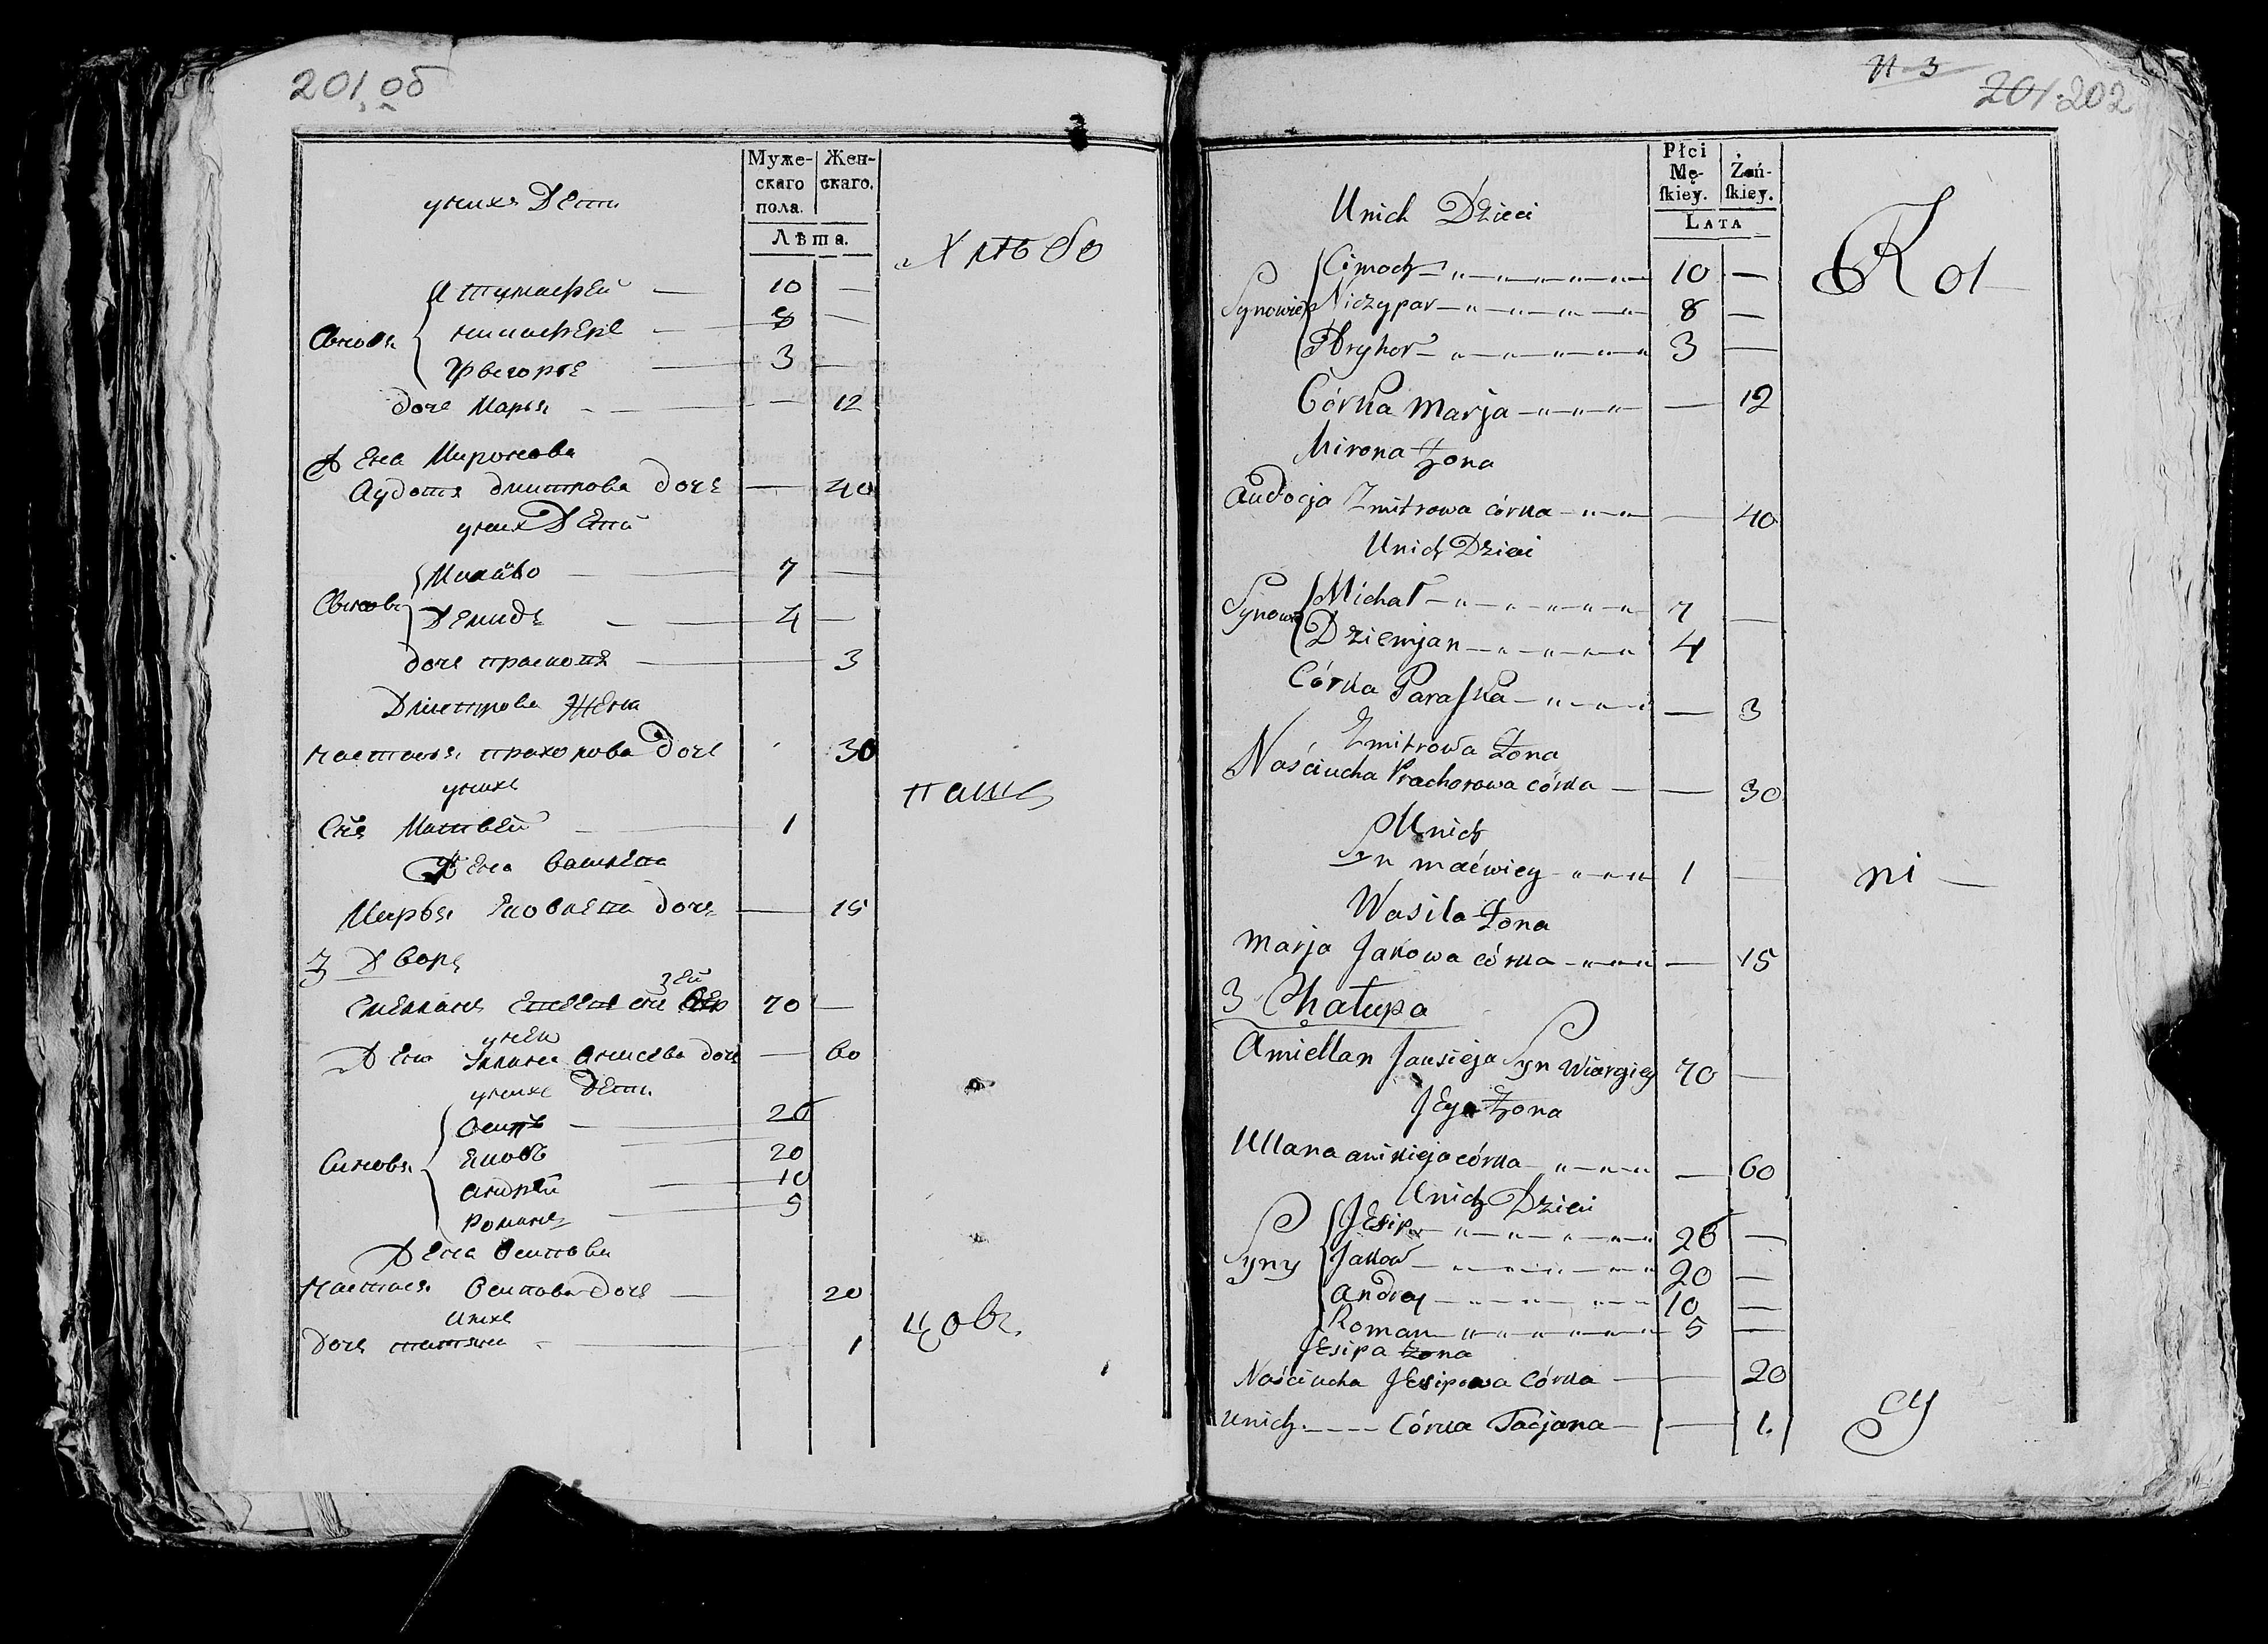 201 об
Муже-
скаго
пола.
Жен-
скаго.
Лѣта.
уних Дети
Хлѣбо
Тимофей — 10 —
Сынове никифере — 8 —
Григорге — 3 —
доче Марья — 12
Жена Миронова
Аудотя дмитрова доче — 40
уних Дети
Михайло — 7 —
Сынове Демиде — 4 —
доче праскопя — 3
Дмитрова Жена
настася прахорова доче 30
уних
паше
Сне Матвей — 1
Жена Василета
Марья Яковлева доче — 15
3 Дворе
зей
Емеляне сне 70 —
Жена Уляна Анисева доче — 60
уних Дети
Осипъ — 26
Синове Яковъ 20
андрей — 10
Романе — 5
Жена Осипова
Настася Осипова доче — 20
Имхе
цове.
доче татяна — 1
N 3
201. 202
Płci
Mę-
ſkiey.
Żeń-
ſkiey.
LATA
Unich Dzieci
Kol
Cimoch 10 —
Synowie Niczypar 8 —
Hryhor 3 —
Córka Marja — 12
Mirona Żona
Audocja Zmitrowa córka — 40
Unich Dzieci
Synowie Michał 7 —
Dziemjan 4
Córka Paraſka — 3
Zmitrowa Żona
Naściucha Prachorowa córka — 30
Unich
Syn maćwiey 1 —
ni —
Wasila Żona
Marja Jakowa córka — 15
3 Chałupa
Amiellan Jausieja Syn Wiargiey 70 —
Jego Żona
Ullana anikieja córka — 60
Unich Dzieci
Syny Jesip 26 —
Jakow 20 —
Andrey 10 —
Roman 5 —
Jesipa żona
Naściucha Jesipowa Córka — 20
cy
Unich Córka Tacjana — 1.